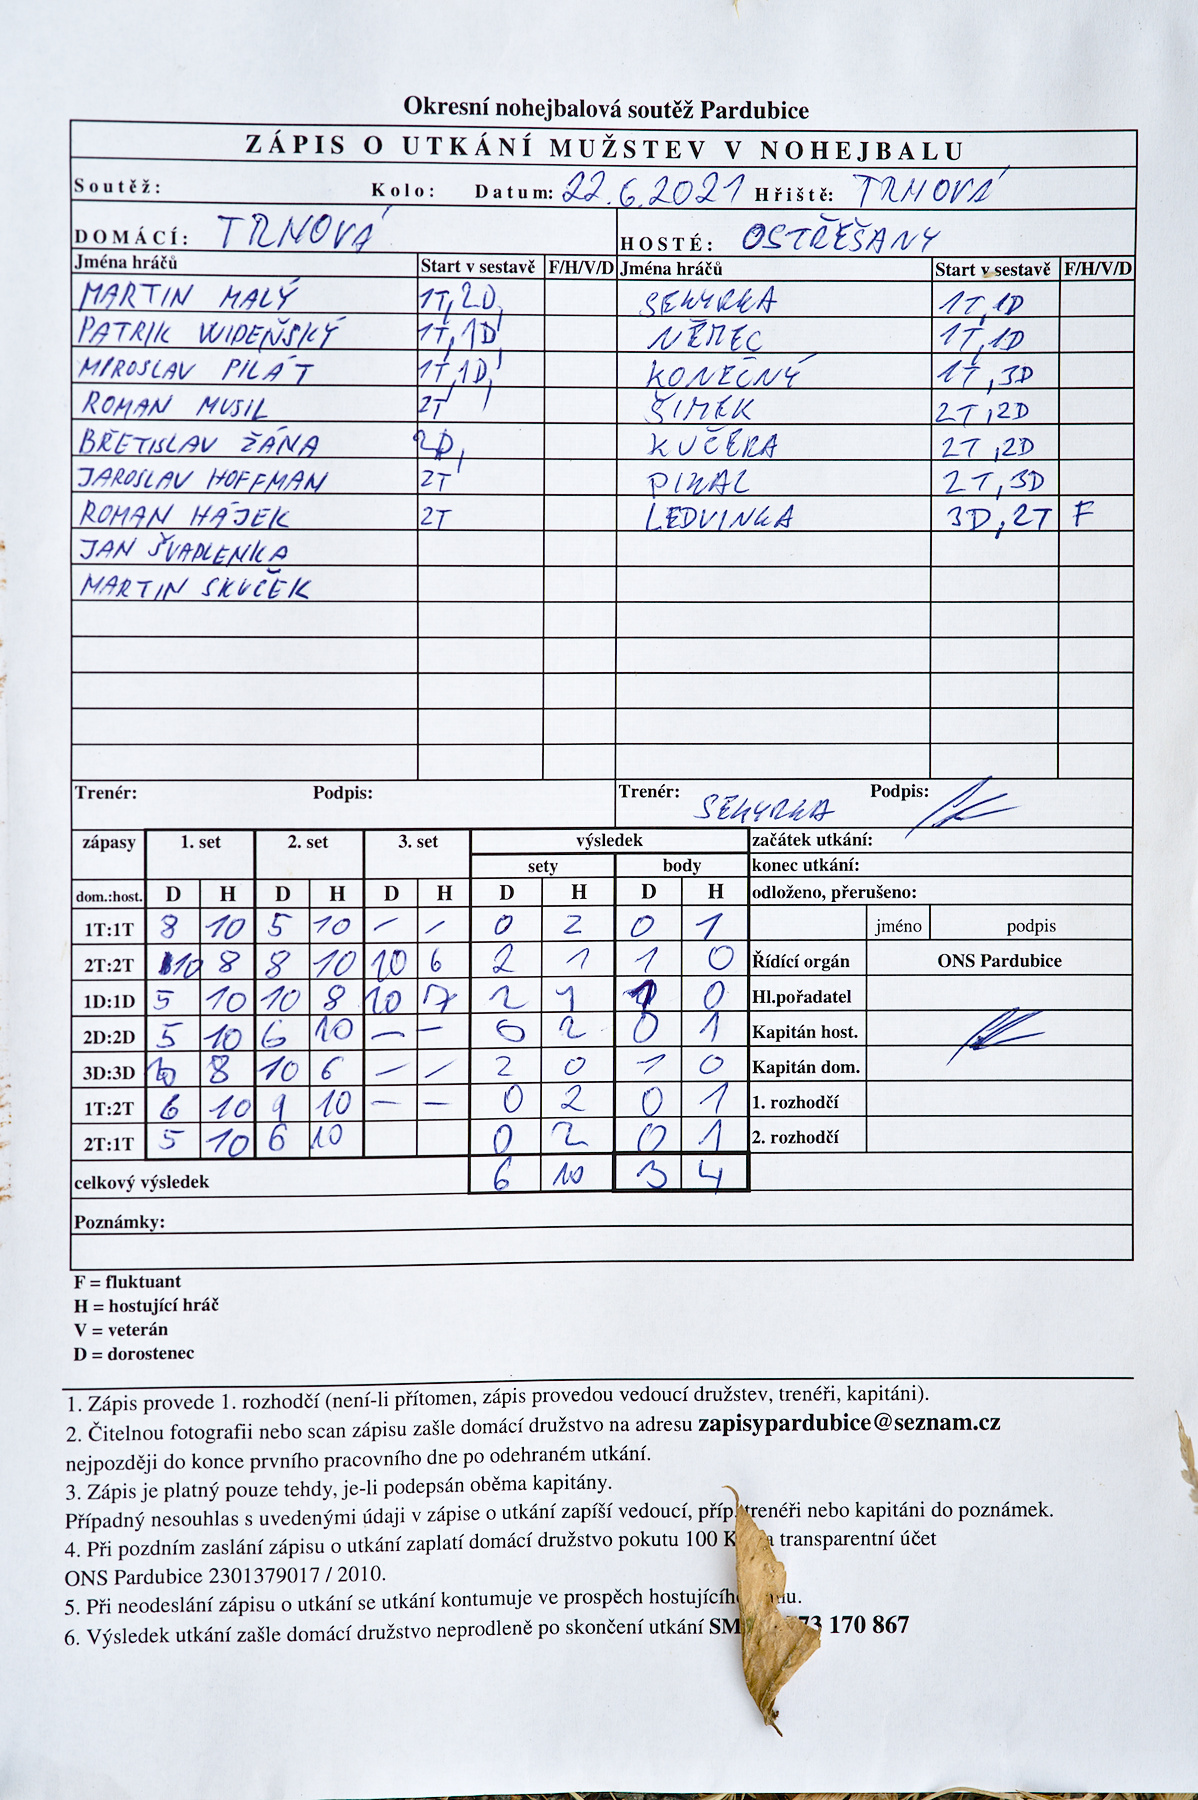 Okresní nohejbalová soutěž Pardubice
ZÁPIS O UTKÁNÍ MUŽSTEV V NOHEJBALU
Soutěž: Kolo: Datum: 22.6.2021 Hřiště: TRNOVÁ
DOMÁCÍ: TRNOVÁ HOSTÉ: OSTŘEŠANY
Jména hráčů Start v sestavě F/H/V/D Jména hráčů Start v sestavě F/H/V/D
MARTIN MALÝ 1T,2D, SEKYRKA 1T,1D
PATRIK WIDEŇSKÝ 1T,1D NĚMEC 1T,1D
MIROSLAV PILÁT 1T,1D, KONEČNÝ 1T,3D
ROMAN MUSIL 2T ŠIMEK 2T,2D
BŘETISLAV ŽÁNA 2D, KUČERA 2T,2D
JAROSLAV HOFFMAN 2T PIKAL 2T,3D
ROMAN HÁJEK 2T LEDVINKA 3D,2T F
JAN ŠVADLENKA
MARTIN SKUČEK
Trenér: Podpis: Trenér: SEKYRKA Podpis:
zápasy 1. set 2. set 3. set výsledek začátek utkání:
sety body konec utkání:
dom.:host. D H D H D H D H D H odloženo, přerušeno:
1T:1T 8 10 5 10 - - 0 2 0 1 jméno podpis
2T:2T 10 8 8 10 10 6 2 1 1 0 Řídící orgán ONS Pardubice
1D:1D 5 10 10 8 10 7 2 1 1 0 Hl.pořadatel
2D:2D 5 10 6 10 - - 0 2 0 1 Kapitán host.
3D:3D 10 8 10 6 - - 2 0 1 0 Kapitán dom.
1T:2T 6 10 9 10 - - 0 2 0 1 1. rozhodčí
2T:1T 5 10 6 10 0 2 0 1 2. rozhodčí
celkový výsledek 6 10 3 4
Poznámky:
F = fluktuant
H = hostující hráč
V = veterán
D = dorostenec
1. Zápis provede 1. rozhodčí (není-li přítomen, zápis provedou vedoucí družstev, trenéři, kapitáni).
2. Čitelnou fotografii nebo scan zápisu zašle domácí družstvo na adresu zapisypardubice@seznam.cz
nejpozději do konce prvního pracovního dne po odehraném utkání.
3. Zápis je platný pouze tehdy, je-li podepsán oběma kapitány.
Případný nesouhlas s uvedenými údaji v zápise o utkání zapíší vedoucí, příp. trenéři nebo kapitáni do poznámek.
4. Při pozdním zaslání zápisu o utkání zaplatí domácí družstvo pokutu 100 transparentní účet
ONS Pardubice 2301379017 / 2010.
5. Při neodeslání zápisu o utkání se utkání kontumuje ve prospěch hostujícího
6. Výsledek utkání zašle domácí družstvo neprodleně po skončení utkání 170 867